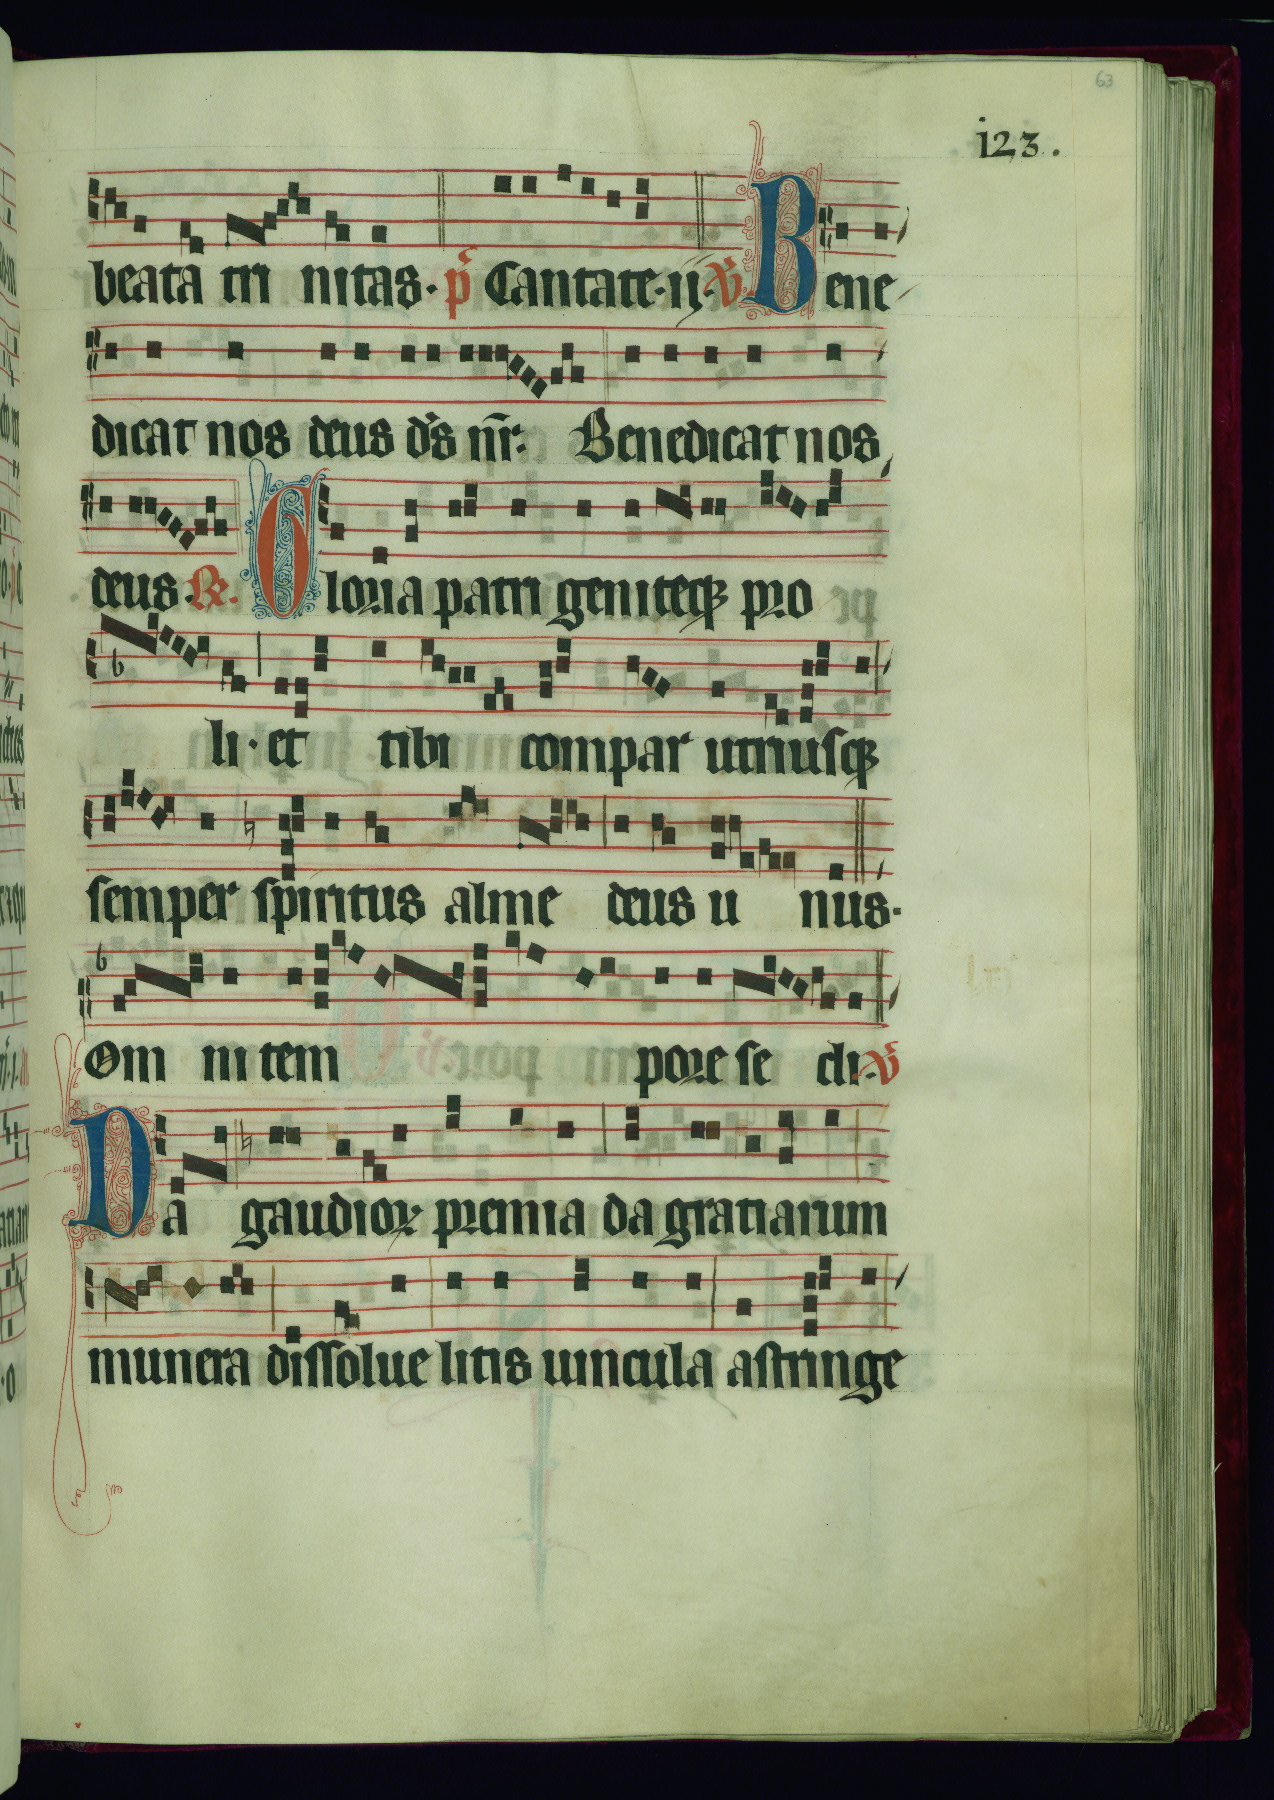 63
123.
beata tri nitas. p̃ Cantate. ij. ṽ. Bene
dicat nos deus dñs nr̃. Benedicat nos
deus. R. Gloria patri geniteqꝫ pro
li. et tibi compar utriusqꝫ
semper spiritus alme deus u nus.
Om ni tem pore se cli. ṽ
Da gaudioꝝ premia da gratiarum
munera dissolue litis uincula astringe